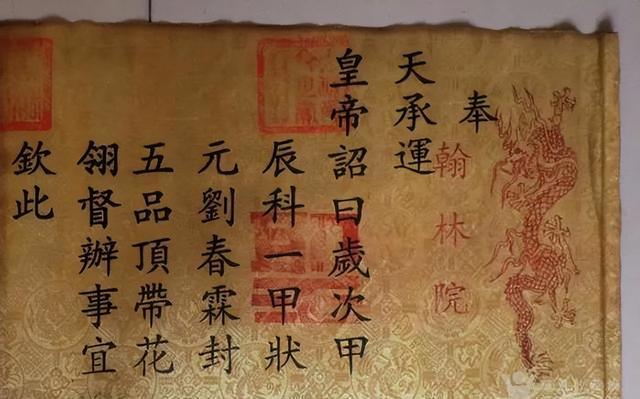 奉
天承運
皇帝詔曰歲次甲
辰科一甲狀
元劉春霖封
五品頂帶花
翎督辦事宜
欽此
翰林院